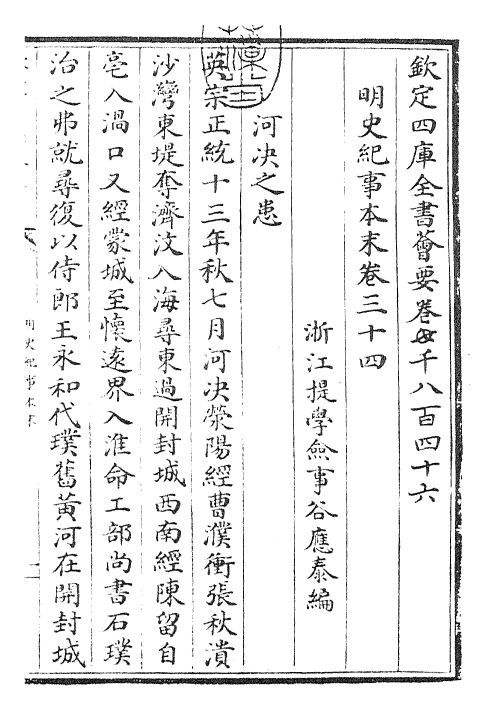 欽定四庫全書薈要卷七千八百四十六
明史紀事本末卷三十四
浙江提學僉事谷應泰編
河決之患
英宗正統十三年秋七月河決滎陽經曹濮衝張秋潰
沙灣東堤奪濟汶入海尋東過開封城西南經陳留自
亳入渦口又經蒙城至懷遠界入淮命工部尚書石璞
治之弗就尋復以侍郎王永和代璞舊黃河在開封城
明史紀事本末
一